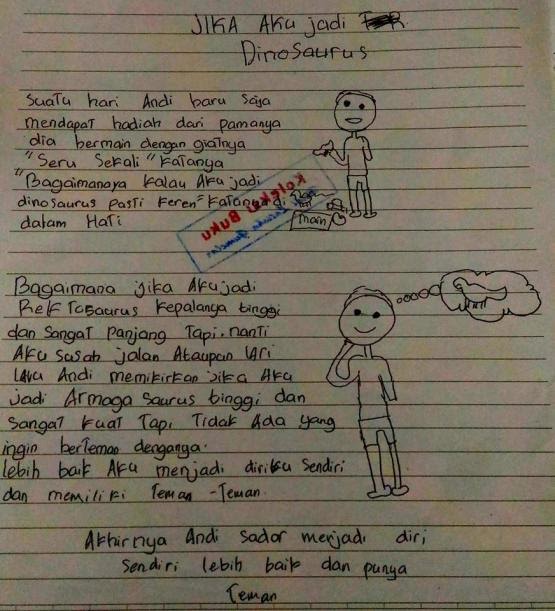 JIKA AKu jadi
Dinosaurus
Suatu hari Andi baru saja
mendapat hadiah dari pamanya
dia bermain dengan giatnya
"Seru Sekali" Katanya
"Bagaimanaya kalau Aku jadi
dinosaurus pasti keren" Katanya di
dalam Hati
Koleksi Buku
main
Bagaimana jika Aku jadi
kepalanya tinggi
dan Sangat Panjang Tapi. nanti
Aku susah jalan Ataupun lari
lalu Andi memikirkan jika Aku
jadi Armaga Saurus tinggi dan
Sangat kuat Tapi Tidak Ada yang
ingin berTeman denganya.
lebih baik Aku menjadi diriku Sendiri
dan memiliki Teman -Teman.
Akhirnya Andi sadar menjadi diri
Sendiri lebih baik dan punya
Teman